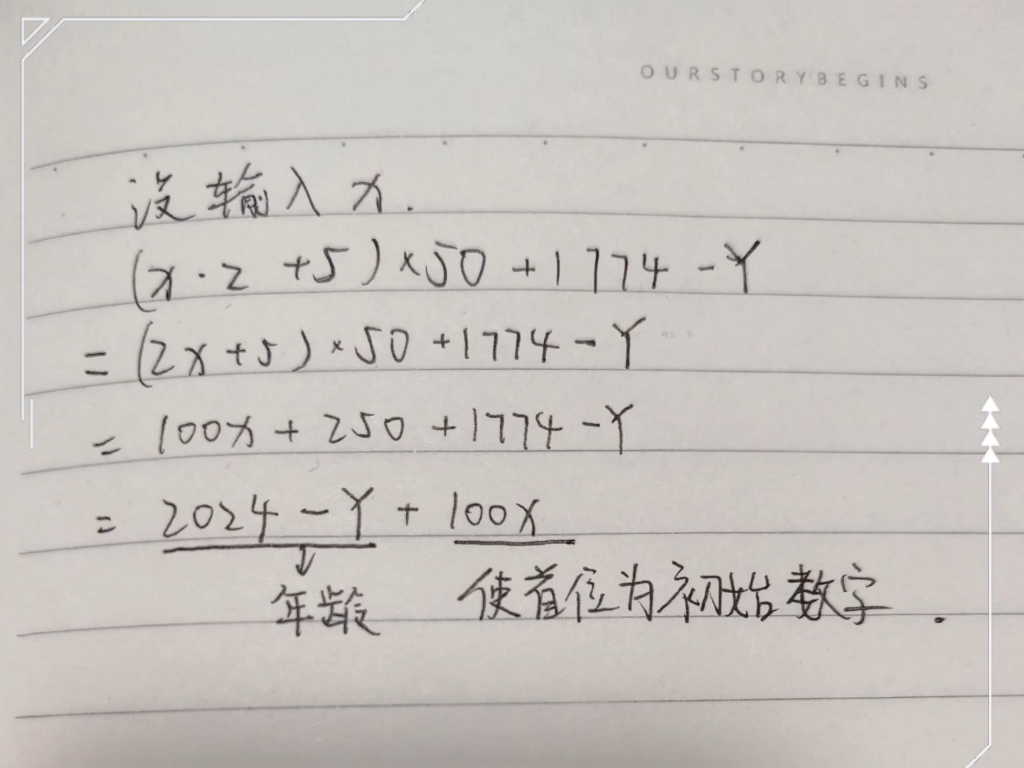 OURSTORYBEGINS
设输入 x.
(x·2+5)×50+1774-Y
=(2x+5)×50+1774-Y
=100x+250+1774-Y
=2024-Y+100x
↓
年龄 使首位为初始数字.